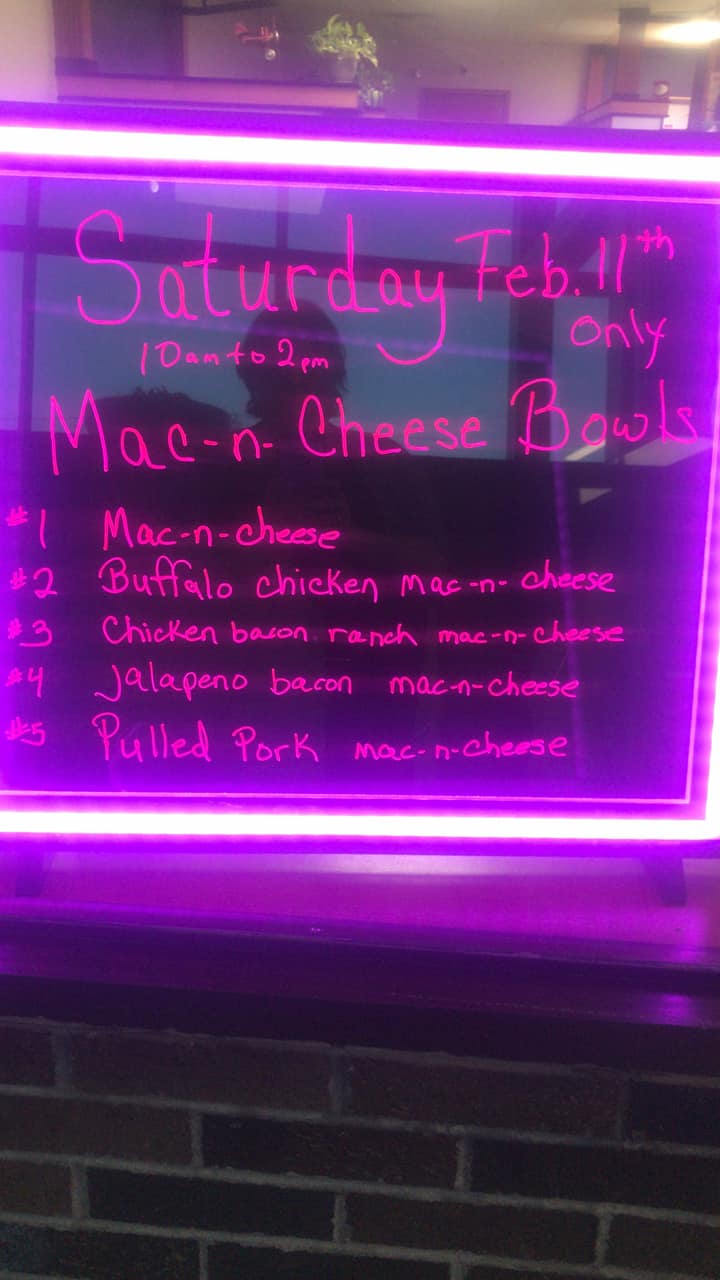 Saturday Feb. 11th
only
10am to 2pm
Mac-n-Cheese Bowls
#1 Mac-n-cheese
#2 Buffalo chicken mac-n-cheese
#3 Chicken bacon ranch mac-n-cheese
#4 Jalapeno bacon mac-n-cheese
#5 Pulled Pork mac-n-cheese